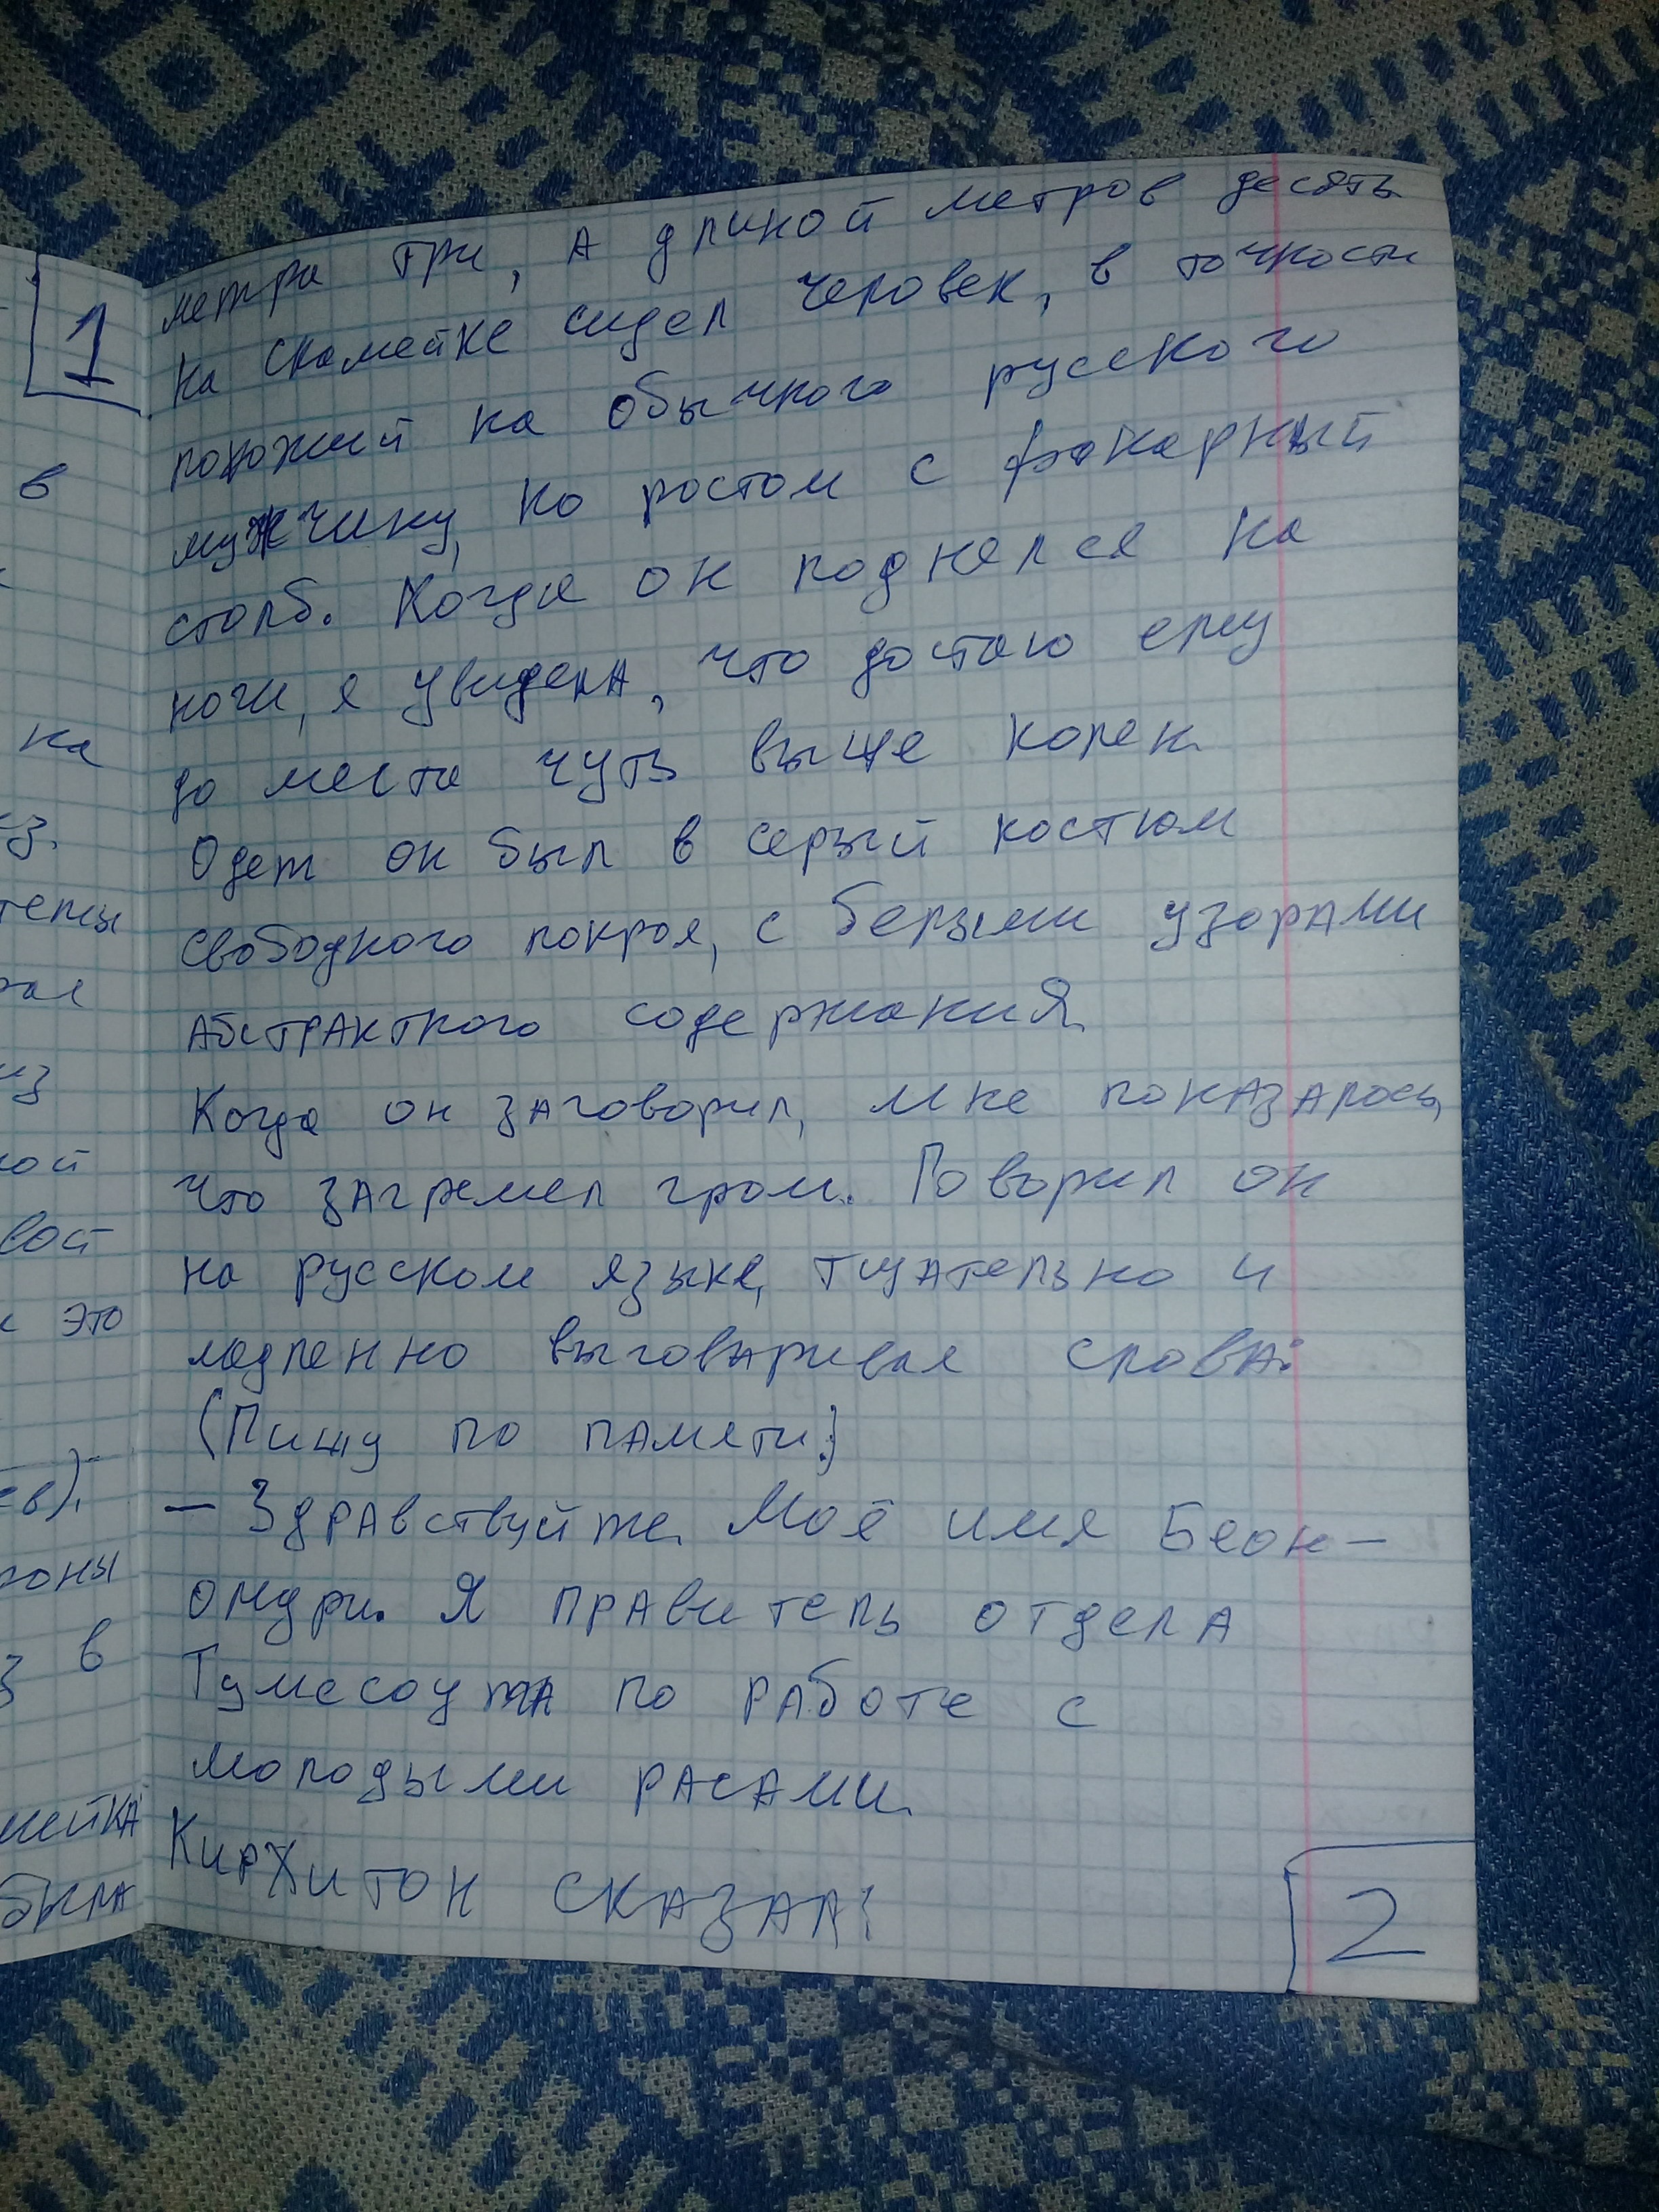 1
в
на
из.
это
в
была
метра три, а длиной метров десять
на скамейке сидел человек, в точности
похожий на обычного русского
мужчину, но ростом с фонарный
столб. Когда он поднялся на
ноги, я увидела, что достаю ему
до места чуть выше колен.
Одет он был в серый костюм
свободного покроя, с белыми узорами
абстрактного содержания.
Когда он заговорил, мне показалось,
что загремел гром. Говорил он
на русском языке, тщательно и
медленно выговаривая слова:
(Пишу по памяти.)
— Здравствуйте. Моё имя Беон-
ондри. Я правитель отдела
Тумесоута по работе с
молодыми расами.
Кирхитон сказал:
2